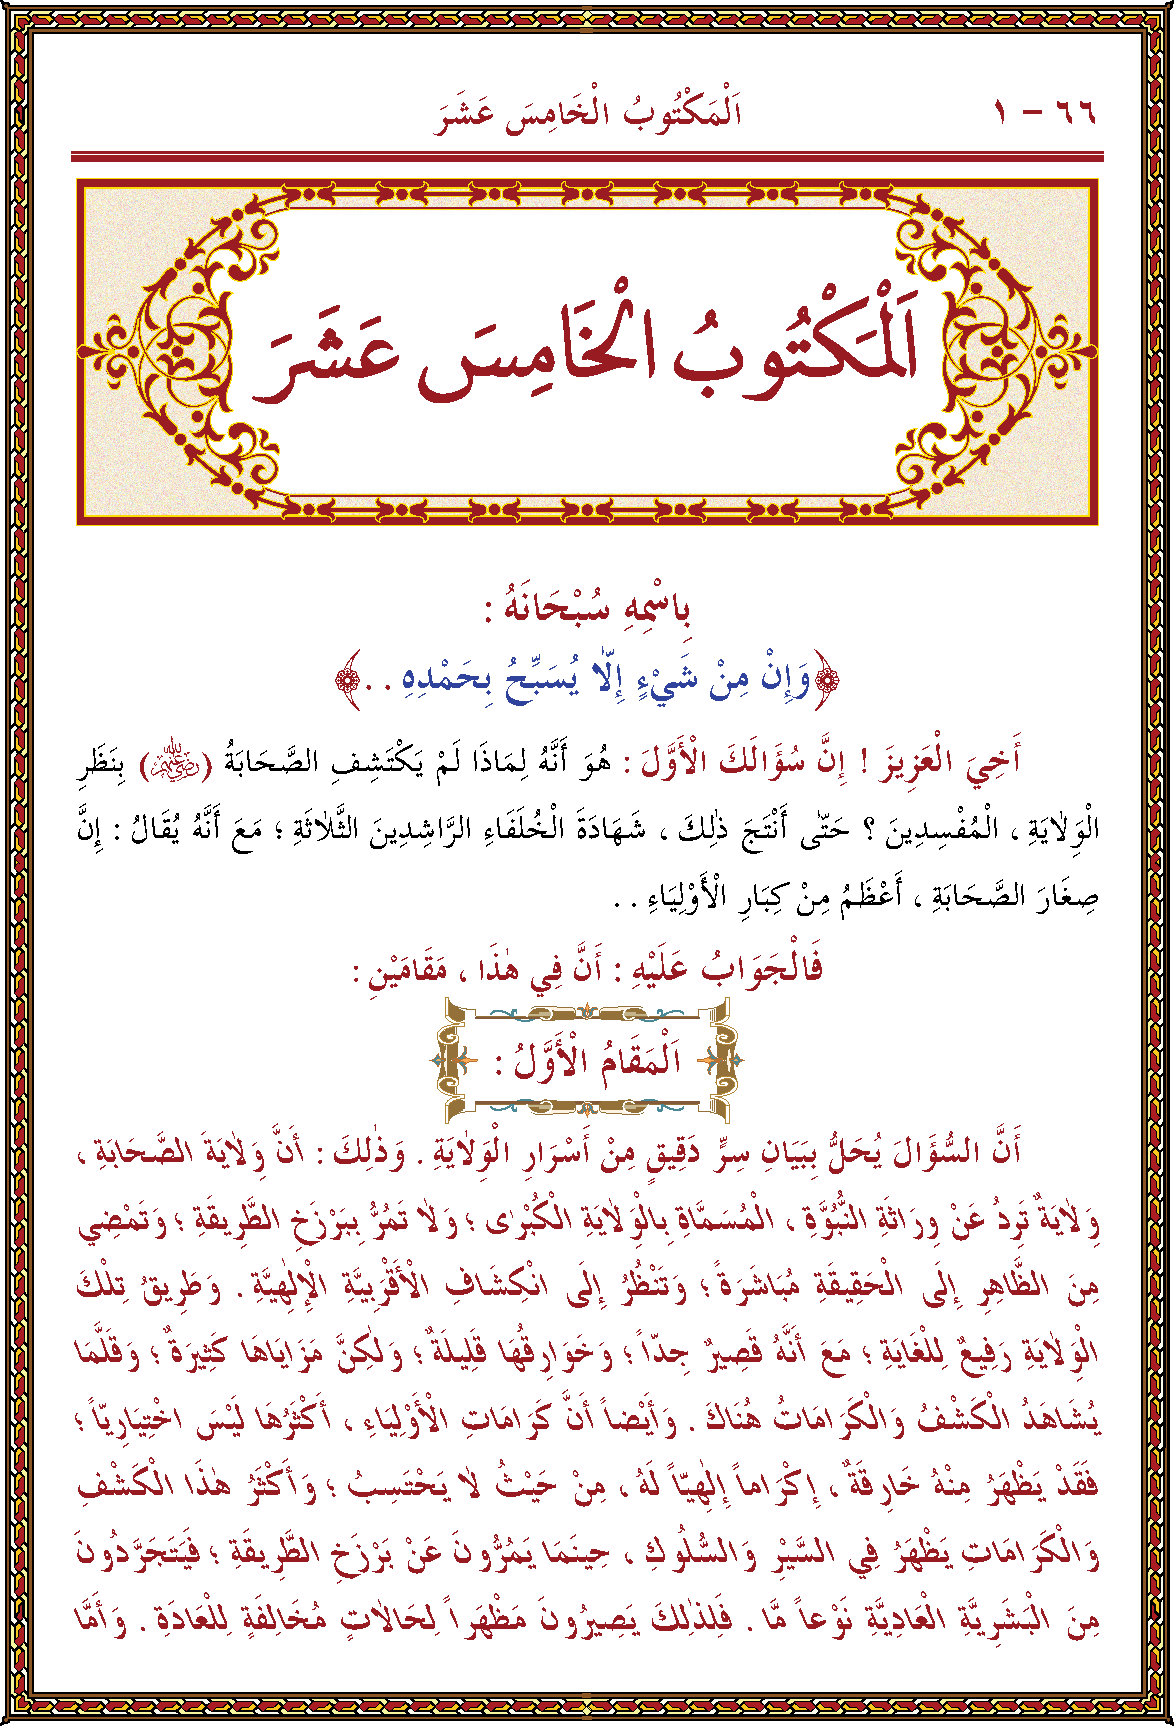 ٦٦ – ١ اَلْمَكْتُوبُ الْخَامِسَ عَشَرَ
اَلْمَكْتُوبُ الْخَامِسَ عَشَرَ
بِاسْمِهِ سُبْحَانَهُ :
﴿وَإِنْ مِنْ شَيْءٍ إِلَّا يُسَبِّحُ بِحَمْدِهِ . .﴾
أَخِيَ الْعَزِيزَ ! إِنَّ سُؤَالَكَ الْأَوَّلَ : هُوَ أَنَّهُ لِمَاذَا لَمْ يَكْتَشِفِ الصَّحَابَةُ (رضي الله عنهم) بِنَظَرِ
الْوِلَايَةِ ، الْمُفْسِدِينَ ؟ حَتّٰى أَنْتَجَ ذٰلِكَ ، شَهَادَةَ الْخُلَفَاءِ الرَّاشِدِينَ الثَّلَاثَةِ ؛ مَعَ أَنَّهُ يُقَالُ : إِنَّ
صِغَارَ الصَّحَابَةِ ، أَعْظَمُ مِنْ كِبَارِ الْأَوْلِيَاءِ . .
فَالْجَوَابُ عَلَيْهِ : أَنَّ فِي هٰذَا ، مَقَامَيْنِ :
اَلْمَقَامُ الْأَوَّلُ :
أَنَّ السُّؤَالَ يُحَلُّ بِبَيَانِ سِرٍّ دَقِيقٍ مِنْ أَسْرَارِ الْوِلَايَةِ . وَذٰلِكَ : أَنَّ وِلَايَةَ الصَّحَابَةِ ،
وِلَايَةٌ تَرِدُ عَنْ وِرَاثَةِ النُّبُوَّةِ ، الْمُسَمَّاةِ بِالْوِلَايَةِ الْكُبْرٰى ؛ وَلَا تَمُرُّ بِبَرْزَخِ الطَّرِيقَةِ ؛ وَتَمْضِي
مِنَ الظَّاهِرِ إِلَى الْحَقِيقَةِ مُبَاشَرَةً ؛ وَتَنْظُرُ إِلَى انْكِشَافِ الْأَقْرَبِيَّةِ الْإِلٰهِيَّةِ . وَطَرِيقُ تِلْكَ
الْوِلَايَةِ رَفِيعٌ لِلْغَايَةِ ؛ مَعَ أَنَّهُ قَصِيرٌ جِدّاً ؛ وَخَوَارِقُهَا قَلِيلَةٌ ؛ وَلٰكِنَّ مَزَايَاهَا كَثِيرَةٌ ؛ وَقَلَّمَا
يُشَاهَدُ الْكَشْفُ وَالْكَرَامَاتُ هُنَاكَ . وَأَيْضاً أَنَّ كَرَامَاتِ الْأَوْلِيَاءِ ، أَكْثَرُهَا لَيْسَ اخْتِيَارِيّاً ؛
فَقَدْ يَظْهَرُ مِنْهُ خَارِقَةٌ ، إِكْرَاماً إِلٰهِيّاً لَهُ ، مِنْ حَيْثُ لَا يَحْتَسِبُ ؛ وَأَكْثَرُ هٰذَا الْكَشْفِ
وَالْكَرَامَاتِ يَظْهَرُ فِي السَّيْرِ وَالسُّلُوكِ ، حِينَمَا يَمُرُّونَ عَنْ بَرْزَخِ الطَّرِيقَةِ ؛ فَيَتَجَرَّدُونَ
مِنَ الْبَشَرِيَّةِ الْعَادِيَّةِ نَوْعاً مَّا . فَلِذٰلِكَ يَصِيرُونَ مَظْهَراً لِحَالَاتٍ مُخَالِفَةٍ لِلْعَادَةِ . وَأَمَّا